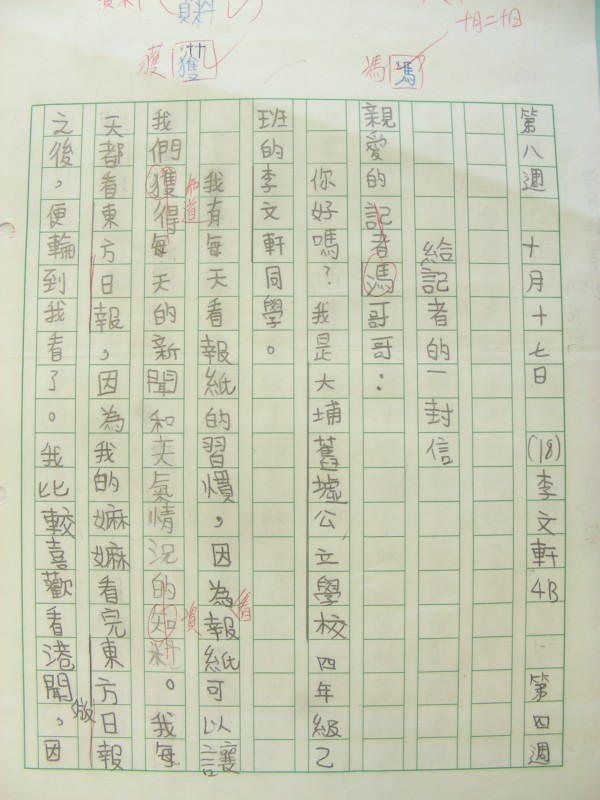 資料
十月二十日
獲 獲
馮 馮
第八週 十月十七日 (18) 李文軒 4B 第四週
給記者的一封信
親愛的記者馮哥哥：
你好嗎？我是大埔舊墟公立學校四年級乙
班的李文軒同學。
我有每天看報紙的習慣，因為看報紙可以讓
知道
我們獲得每天的新聞和天氣情況的知料。我每
資
天都看東方日報，因為我的嫲嫲看完東方日報
之後，便輪到我看了。我比較喜歡看港聞版，因